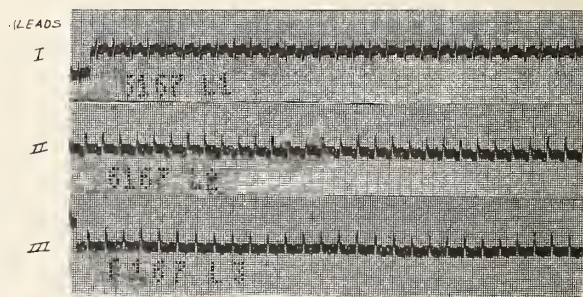 LEADS
I
5167 L1
II
5167 L2
III
5167 L3